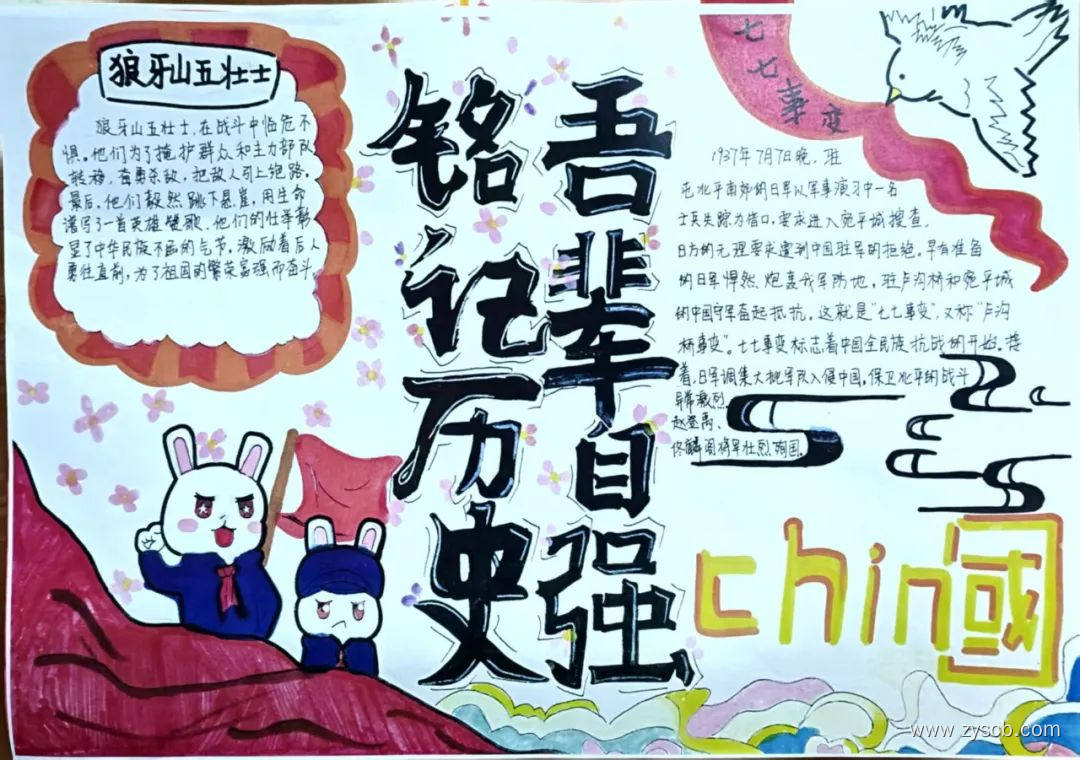 狼牙山五壮士
狼牙山五壮士,在战斗中临危不
惧。他们为了掩护群众和主力部队
转移,奋勇杀敌,把敌人引上绝路。
最后,他们毅然跳下悬崖,用生命
谱写了一首英雄赞歌。他们的壮举彰
显了中华民族不屈的气节,激励着后人
勇往直前,为了祖国的繁荣富强而奋斗。
铭记历史
吾辈自强
七七事变
1937年7月7日晚,驻
屯北平南郊的日军以军事演习中一名
士兵失踪为借口,要求进入宛平城搜查,
日方的无理要求遭到中国驻军的拒绝。早有准备
的日军悍然炮轰我军防地,驻卢沟桥和宛平城
的中国守军奋起抵抗。这就是“七七事变”,又称“卢沟
桥事变”。七七事变标志着中国全民族抗战的开始。接
着,日军调集大批军队入侵中国。保卫北平的战斗
异常激烈,
赵登禹、
佟麟阁将军壮烈殉国。
chin國
www.zyscb.com